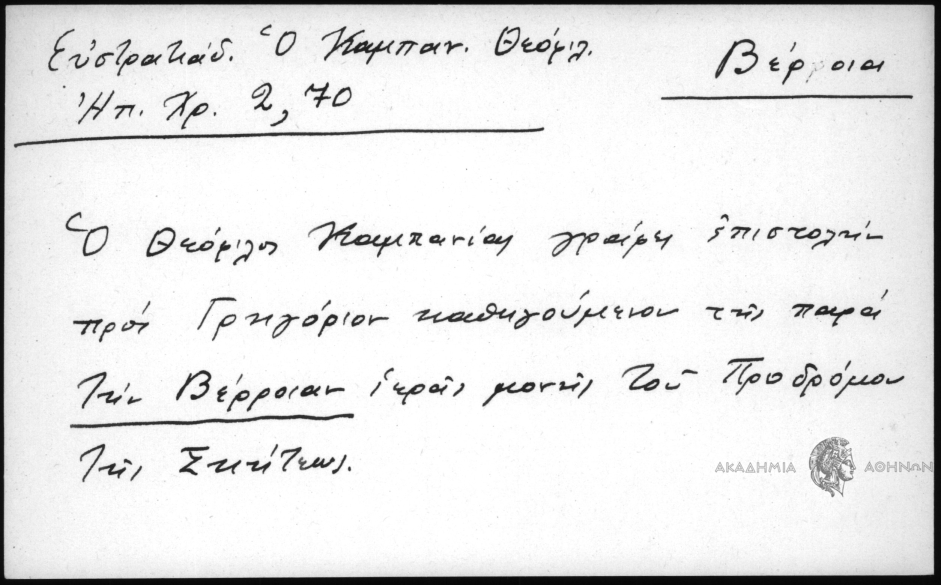 Εὐστρατιάδ. Ὁ Καμπαν. Θεόφιλ.
Ἠπ. Χρ. 2, 70
Βέρροια
Ὁ Θεόφιλος Καμπανίας γράφει ἐπιστολὴν
πρὸς Γρηγόριον καθηγούμενον τῆς παρὰ
τὴν Βέρροιαν ἱερᾶς μονῆς τοῦ Προδρόμου
τῆς Σκήτεως.
ΑΚΑΔΗΜΙΑ ΑΘΗΝΩΝ